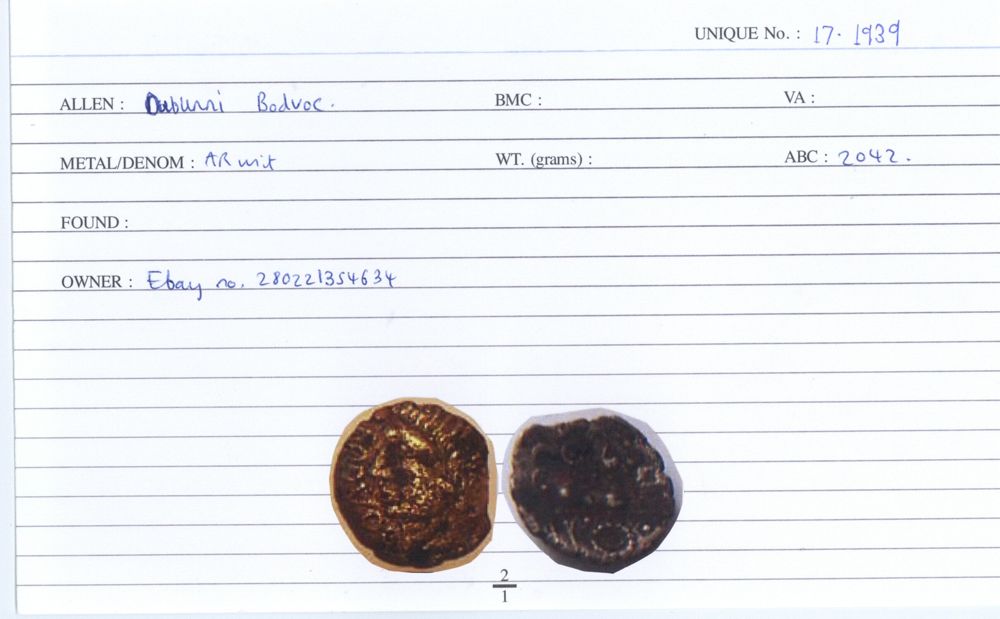 UNIQUE No. : 17. 1939
ALLEN : Dobunni Bodvoc. BMC : VA :
METAL/DENOM : AR unit WT. (grams) : ABC : 2042.
FOUND :
OWNER : Ebay no. 280221354634
2
1